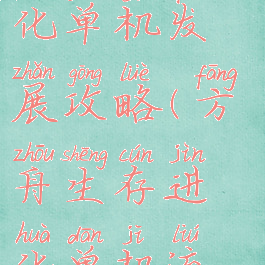 化单机发
zhǎn gōng lüè fāng
展攻略(方
zhōu shēng cún jìn
舟生存进
huà dān jī liú
化单机流